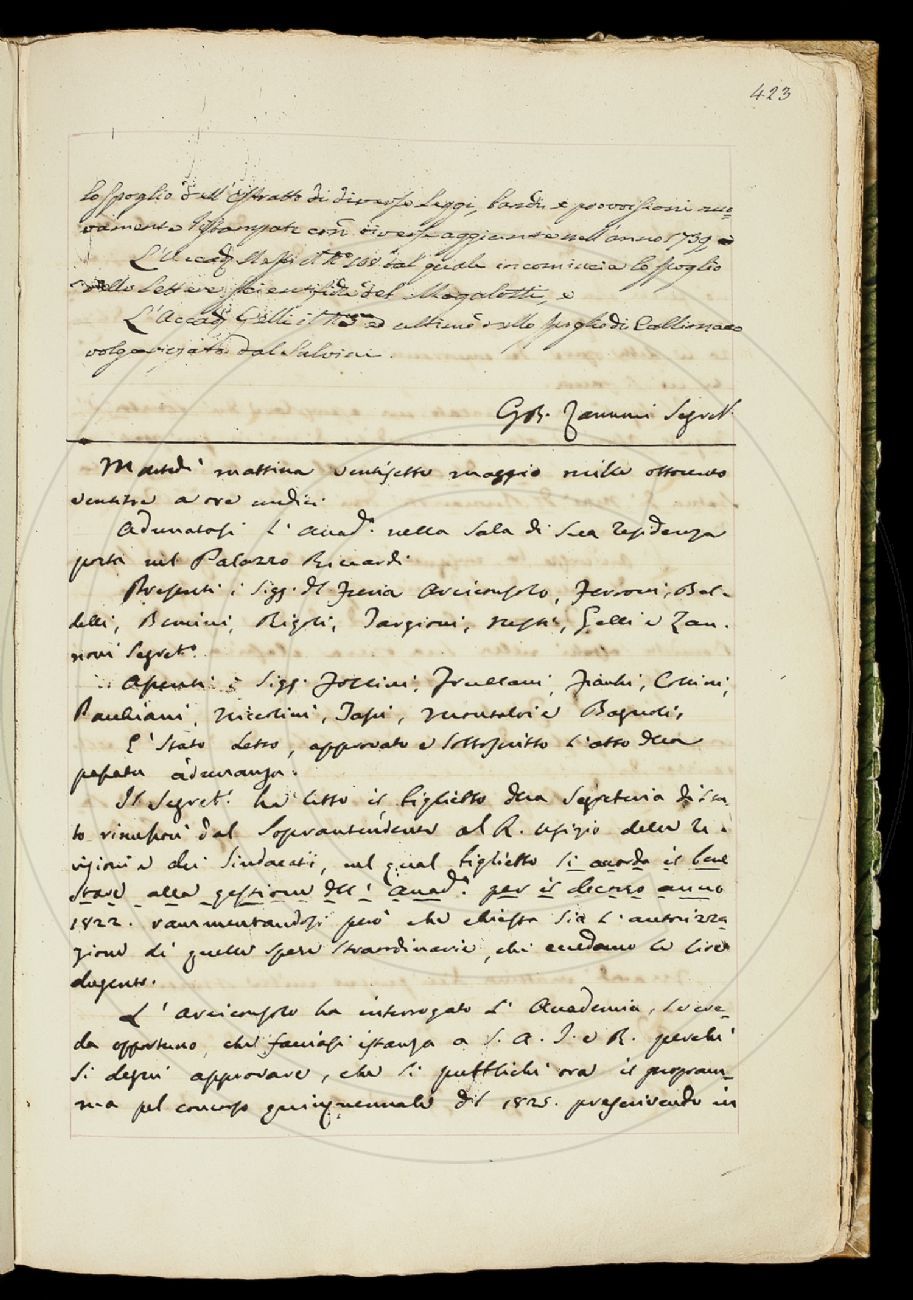 423
lo spoglio dell'Estratto di diverse Leggi, bandi e provvisioni nuo-
vamente ristampate con diverse aggiunte nell'anno 1732, e
L'Accad. Nesti il N.º dal quale incomincia lo spoglio
delle Lettere scientifiche del Magalotti, e
L'Accad. Gelli il ed ultimo dello spoglio di Callimaco
volgarizzato dal Salvini.
GB. Zannoni Segret.º
Martedì mattina ventisette maggio mille ottocento
ventitre a ore undici
Adunatasi l'Accad.ª nella Sala di Sua residenza
posta nel Palazzo Riccardi
Presenti i Sigg. Del Furia Arciconsolo, Ferroni, Bal-
delli, Bencini, Rigoli, Targioni, Nesti, Gelli e Zan-
noni Segret.º
Assenti i Sigg. Follini, Frullani, Fiacchi, Collini,
Pauliani, Niccolini, Tassi, Montalvi e Bagnoli,
E' Stato Letto, approvato e Sottoscritto l'atto della
passata adunanza.
Il Segret.º ha letto il biglietto della Segreteria di Sta
to rimessoli dal Soprantendente al R. Ufizio delle Re-
visioni e dei Sindacati, nel qual biglietto si accorda il bene
stare alla gestione dell'Accad.ª per il decorso anno
1822. rammentandosi però che chiesta sia l'autorizza
zione di quelle spese straordinarie, che eccedano le lire
dugento.
L'Arciconsolo ha interrogato l'Accademia, se cre-
da opportuno, che facciasi istanza a S. A. I. e R. perchè
si degni approvare, che si pubblichi ora il program-
ma pel concorso quinquennale del 1825. prescrivendo in